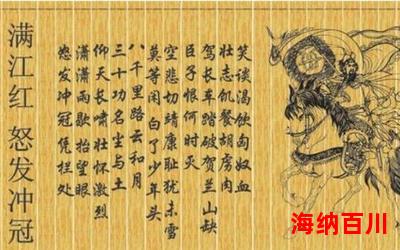 满江红 怒发冲冠
怒发冲冠凭栏处
潇潇雨歇抬望眼
仰天长啸壮怀激烈
三十功名尘与土
八千里路云和月
莫等闲白了少年头
空悲切靖康耻犹未雪
臣子恨何时灭
驾长车踏破贺兰山缺
壮志饥餐胡虏肉
笑谈渴饮匈奴血
海纳百川